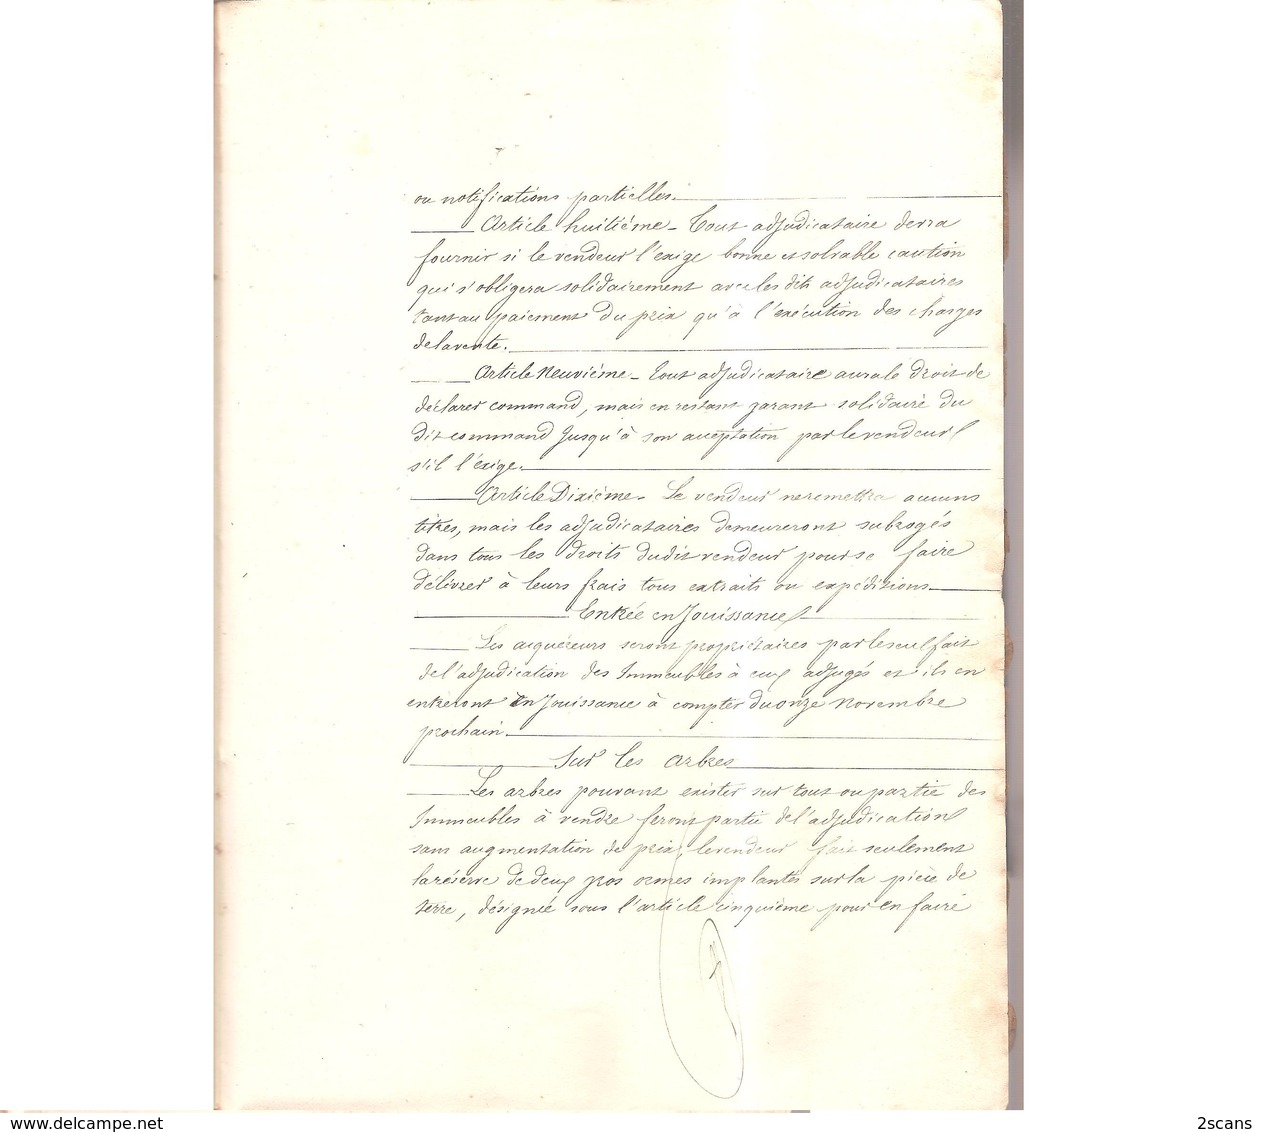 ou notifications partielles.
Article huitième - Tout adjudicataire devra
fournir si le vendeur l'exige bonne et solvable caution
qui s'obligera solidairement avec les dits adjudicataires
tant au paiement du prix qu'à l'exécution des charges
de la vente.
Article Neuvième - Tout adjudicataire aura le droit de
déclarer command, mais en restant garant solidaire du
dit command jusqu'à son acceptation par le vendeur
s'il l'exige.
Article Dixième - Le vendeur ne remettra aucuns
titres, mais les adjudicataires demeureront subrogés
dans tous les droits dudit vendeur pour se faire
délivrer à leurs frais tous extraits ou expéditions
Entrée en Jouissance
Les acquéreurs seront propriétaires par le seul fait
de l'adjudication des Immeubles à eux adjugés et ils en
entreront en Jouissance à compter du onze Novembre
prochain.
Sur les arbres
Les arbres pouvant exister sur tout ou partie des
Immeubles à vendre feront partie de l'adjudication
sans augmentation de prix, le vendeur fait seulement
la réserve de deux gros ormes implantés sur la pièce de
terre, désignée sous l'article cinquième pour en faire
2scans
www.delcampe.net